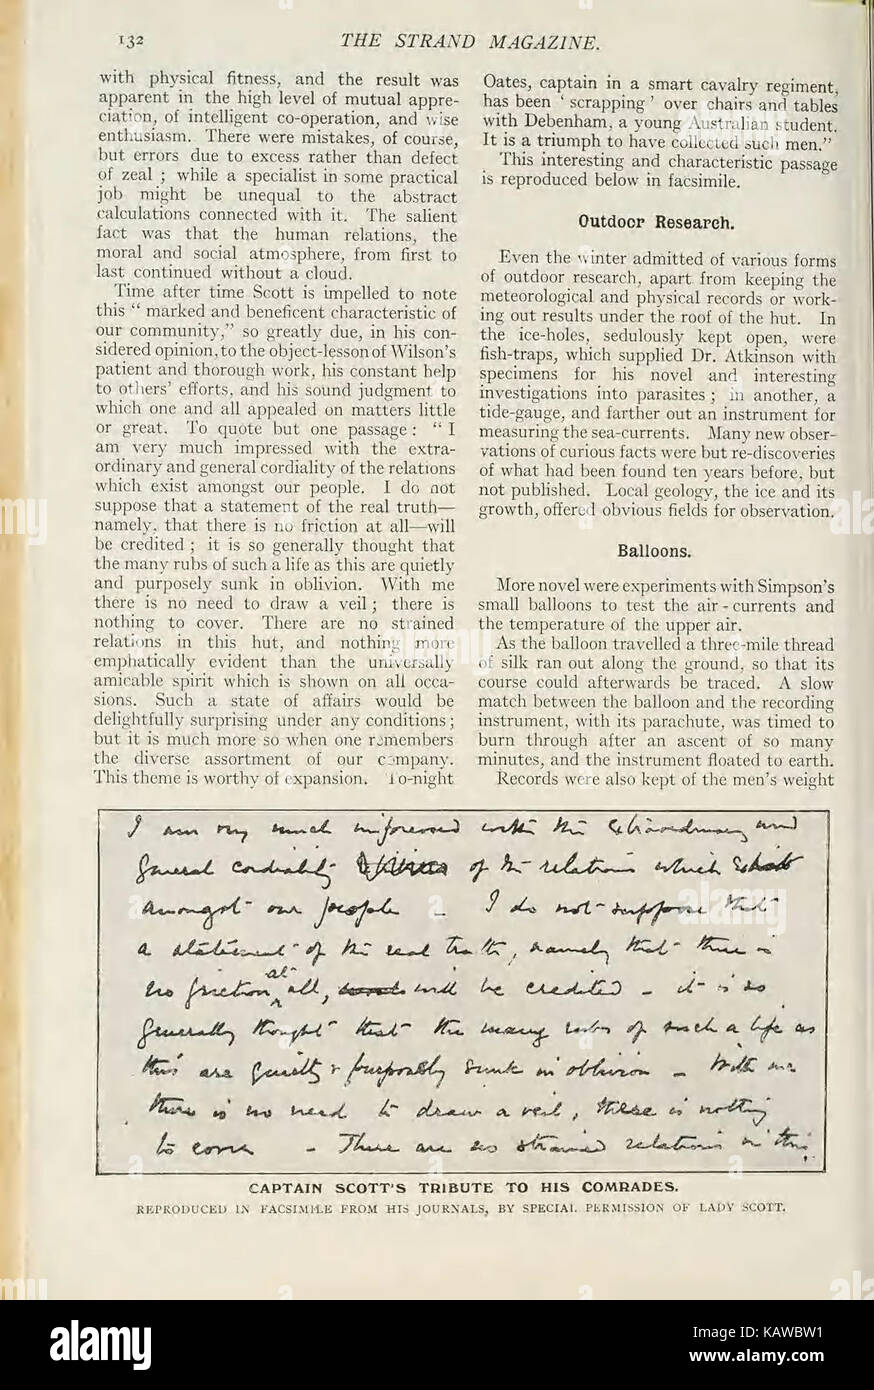 132
THE STRAND MAGAZINE.
with physical fitness, and the result was
apparent in the high level of mutual appre-
ciation, of intelligent co-operation, and wise
enthusiasm. There were mistakes, of course,
but errors due to excess rather than defect
of zeal ; while a specialist in some practical
job might be unequal to the abstract
calculations connected with it. The salient
fact was that the human relations, the
moral and social atmosphere, from first to
last continued without a cloud.
Time after time Scott is impelled to note
this “ marked and beneficent characteristic of
our community,” so greatly due, in his con-
sidered opinion, to the object-lesson of Wilson's
patient and thorough work, his constant help
to others' efforts, and his sound judgment to
which one and all appealed on matters little
or great. To quote but one passage : “ I
am very much impressed with the extra-
ordinary and general cordiality of the relations
which exist amongst our people. I do not
suppose that a statement of the real truth—
namely, that there is no friction at all—will
be credited ; it is so generally thought that
the many rubs of such a life as this are quietly
and purposely sunk in oblivion. With me
there is no need to draw a veil ; there is
nothing to cover. There are no strained
relations in this hut, and nothing more
emphatically evident than the universally
amicable spirit which is shown on all occa-
sions. Such a state of affairs would be
delightfully surprising under any conditions ;
but it is much more so when one remembers
the diverse assortment of our company.
This theme is worthy of expansion. To-night
Oates, captain in a smart cavalry regiment,
has been ‘ scrapping ’ over chairs and tables
with Debenham, a young Australian student.
It is a triumph to have collected such men.”
This interesting and characteristic passage
is reproduced below in facsimile.
Outdoor Research.
Even the winter admitted of various forms
of outdoor research, apart from keeping the
meteorological and physical records or work-
ing out results under the roof of the hut. In
the ice-holes, sedulously kept open, were
fish-traps, which supplied Dr. Atkinson with
specimens for his novel and interesting
investigations into parasites ; in another, a
tide-gauge, and farther out an instrument for
measuring the sea-currents. Many new obser-
vations of curious facts were but re-discoveries
of what had been found ten years before, but
not published. Local geology, the ice and its
growth, offered obvious fields for observation.
Balloons.
More novel were experiments with Simpson's
small balloons to test the air-currents and
the temperature of the upper air.
As the balloon travelled a three-mile thread
of silk ran out along the ground, so that its
course could afterwards be traced. A slow
match between the balloon and the recording
instrument, with its parachute, was timed to
burn through after an ascent of so many
minutes, and the instrument floated to earth.
Records were also kept of the men's weight
I am very much impressed with the extraordinary and
general cordiality of the relations which exist
amongst our people - I do not suppose that
a statement of the real truth, namely that there is
no friction at all, will be credited - it is so
generally thought that the many rubs of such a life as
this are quietly & purposely sunk in oblivion - With me
there is no need to draw a veil, there is nothing
to cover - There are no strained relations in this
CAPTAIN SCOTT'S TRIBUTE TO HIS COMRADES.
REPRODUCED IN FACSIMILE FROM HIS JOURNALS, BY SPECIAL PERMISSION OF LADY SCOTT.
alamy
alamy
Image ID: KAWBW1
www.alamy.com